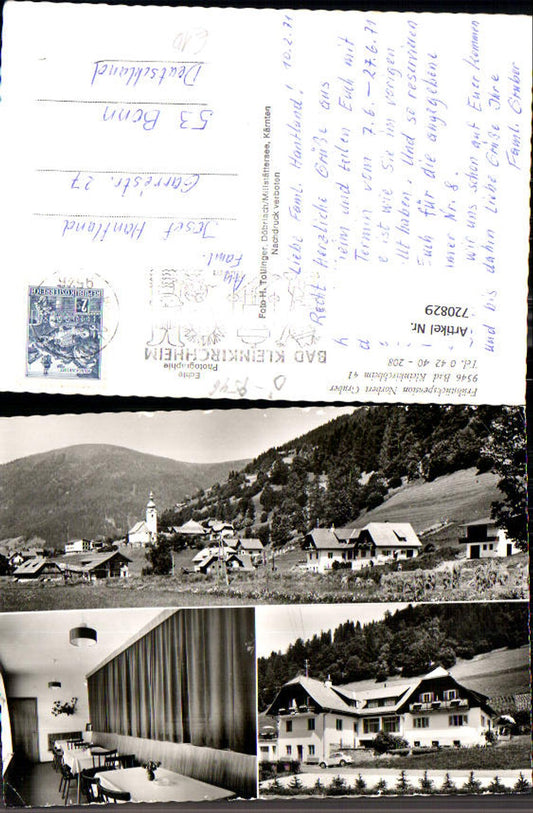 10.2.71
Liebe Faml. Hantland!
Recht Herzliche Grüße aus
und teilen Euch mit
Termin vom 7.6.–27.6.71
ist wie Sie im vorigen
haben. Und so reservieren
Euch für die angegebene
Nr. 8.
wir uns schon auf Euer kommen
und bis dahin Liebe Grüße Ihre
Faml. Gruber
Artikel Nr.
720829
Frühstückspension Norbert Gruber
9546 Bad Kleinkirchheim 41
Tel. 0 42 40 - 208
Foto-H. Tollinger, Döbriach/Millstättersee, Kärnten
Nachdruck verboten
Echte
Photographie
BAD KLEINKIRCHHEIM
9546
REPUBLIK ÖSTERREICH
Faml.
Josef Hantland
Garréstr. 27
53 Bonn
Deutschland